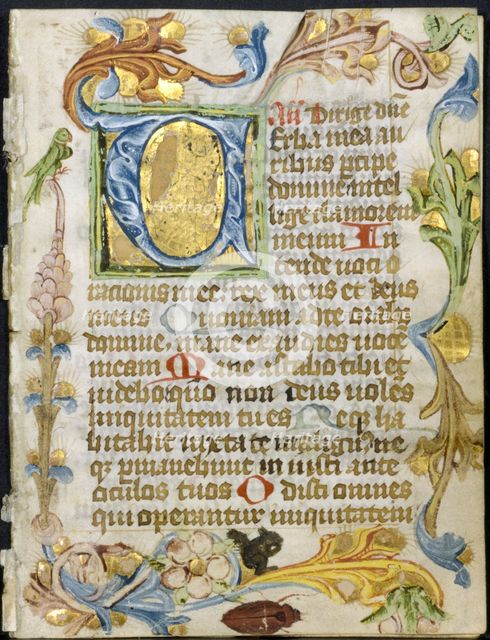 Añ Dirige dñe
Uerba mea au
ribus p̄cipe
domine intel
lige clamorem
meum In
tende voci o
racionis mee rex meus et deus
meus Quoniam ad te orabo
domine mane exaudies vocē
meam Mane astabo tibi et
videbo quo non deus volēs
iniquitatem tu es Neq; ha
bitabit iuxta te malignꝰ ne
q; p̄manebunt in iusti ante
oculos tuos Odisti omnes
qui operantur iniquitatem